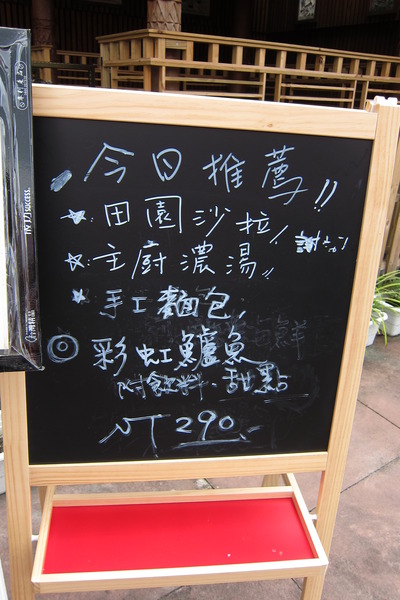 今日推薦!!
☆. 田園沙拉
☆. 主廚濃湯
☆ 手工麵包
◎ 彩虹鱸魚
附飲料、甜點
NT 290.-
success.